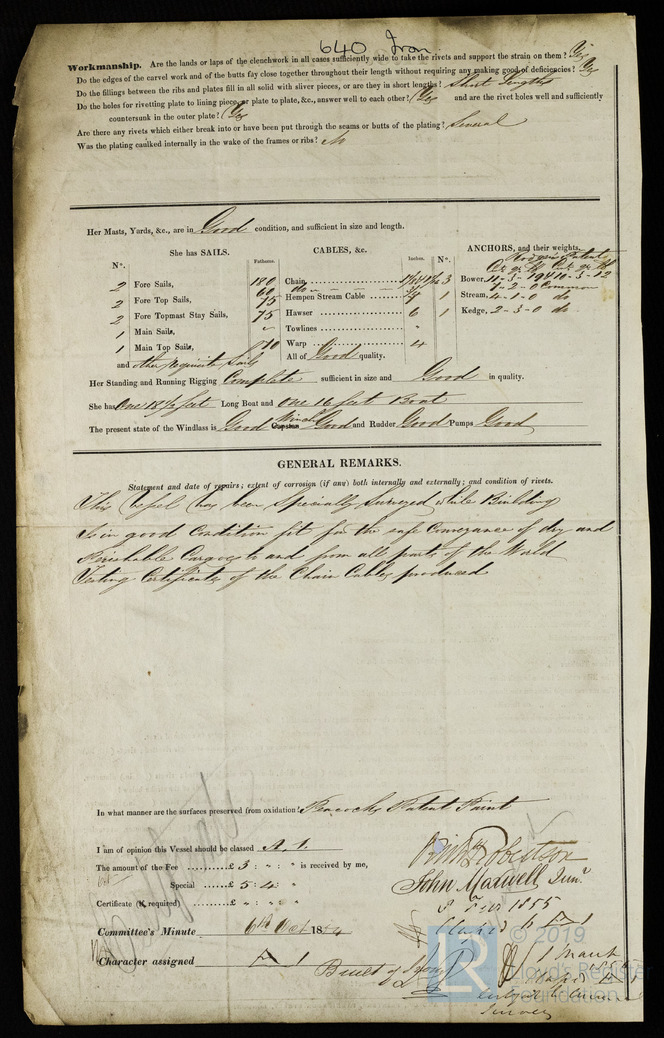 640 Iron
Workmanship. Are the lands or laps of the clenchwork in all cases sufficiently wide to take the rivets and support the strain on them? Yes
Do the edges of the carvel work and of the butts fay close together throughout their length without requiring any making good of deficiencies? Yes
Do the fillings between the ribs and plates fill in all solid with sliver pieces, or are they in short lengths? Short Lengths
Do the holes for rivetting plate to lining piece, or plate to plate, &c., answer well to each other? Yes and are the rivet holes well and sufficiently
countersunk in the outer plate? Yes
Are there any rivets which either break into or have been put through the seams or butts of the plating? Several
Was the plating caulked internally in the wake of the frames or ribs? No
Her Masts, Yards, &c., are in Good condition, and sufficient in size and length.
She has SAILS. CABLES, &c. ANCHORS, and their weights.
Nº. Fathoms. Inches. Nº.
2 Fore Sails, 180 Chain 3 Bower,
60 do
2 Fore Top Sails, 75 Hempen Stream Cable 1 Stream, 4-1-0 do
2 Fore Topmast Stay Sails, 75 Hawser 6 1 Kedge, 2-3-0 do
1 Main Sails, Towlines "
1 Main Top Sails, Warp 4
and other requisite Sails All of Good quality.
Her Standing and Running Rigging Complete sufficient in size and Good in quality.
She has One 18½ feet Long Boat and One 16 feet Boat
The present state of the Windlass is Good Capstan Winch Good and Rudder Good Pumps Good
GENERAL REMARKS.
Statement and date of repairs; extent of corrosion (if any) both internally and externally; and condition of rivets.
This Vessel has been Specially Surveyed while Building
Is in good Condition fit for the safe Conveyance of dry and
Perishable Cargoes to and from all parts of the World
Testing Certificates of the Chain Cables produced
In what manner are the surfaces preserved from oxidation? Peacocks Patent Paint
I am of opinion this Vessel should be classed A.1.
The amount of the Fee £ 3 : " : " is received by me, Robertson
Special £ 5 : 4 : " John Maxwell Junr
Certificate (if required) £ " : " : " 1855
Committee's Minute 6th Oct 1854
Character assigned A 1
Built of Iron
1 March
© 2019
Lloyd's Register
Foundation
LR